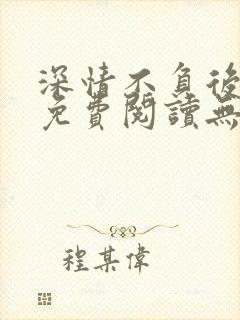 深情不負後
免費閱讀無
程某偉